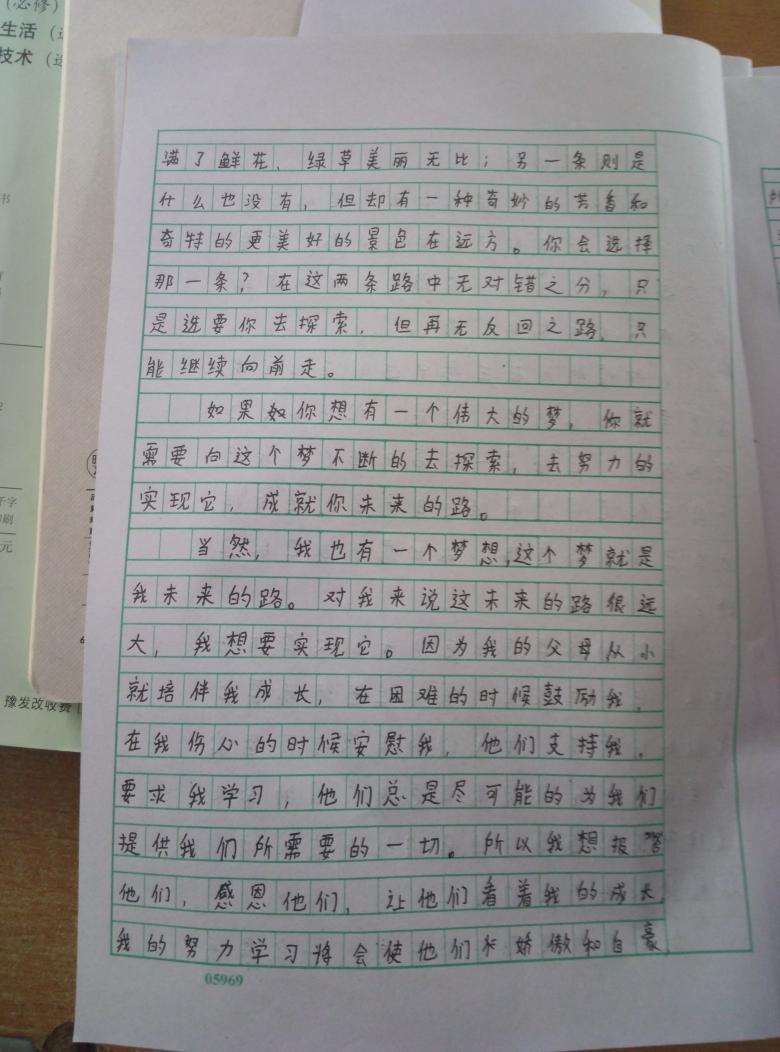 (必修)
生活
技术
书
千字
印刷
元
豫发改收费
满了鲜花、绿草美丽无比；另一条则是
什么也没有，但却有一种奇妙的芳香和
奇特的更美好的景色在远方。你会选择
那一条？在这两条路中无对错之分，只
是选要你去探索，但再无反回之路，只
能继续向前走。
如果你想有一个伟大的梦，你就
需要向这个梦不断的去探索，去努力的
实现它，成就你未来的路。
当然，我也有一个梦想，这个梦就是
我未来的路。对我来说这未来的路很远
大，我想要实现它。因为我的父母从小
就培伴我成长，在困难的时候鼓励我，
在我伤心的时候安慰我，他们支持我，
要求我学习，他们总是尽可能的为我们
提供我们所需要的一切。所以我想报
他们，感恩他们，让他们看着我的成长，
我的努力学习将会使他们 娇傲和自豪
05969